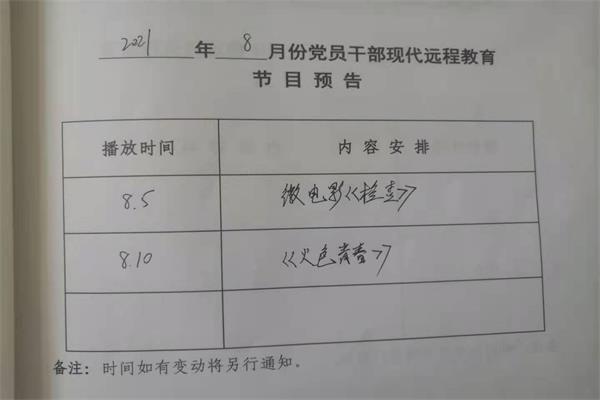 2021年8月份党员干部现代远程教育
节目预告
播放时间 内容安排
8.5 微电影《检查》
8.10 《火色青春》
备注：时间如有变动将另行通知。